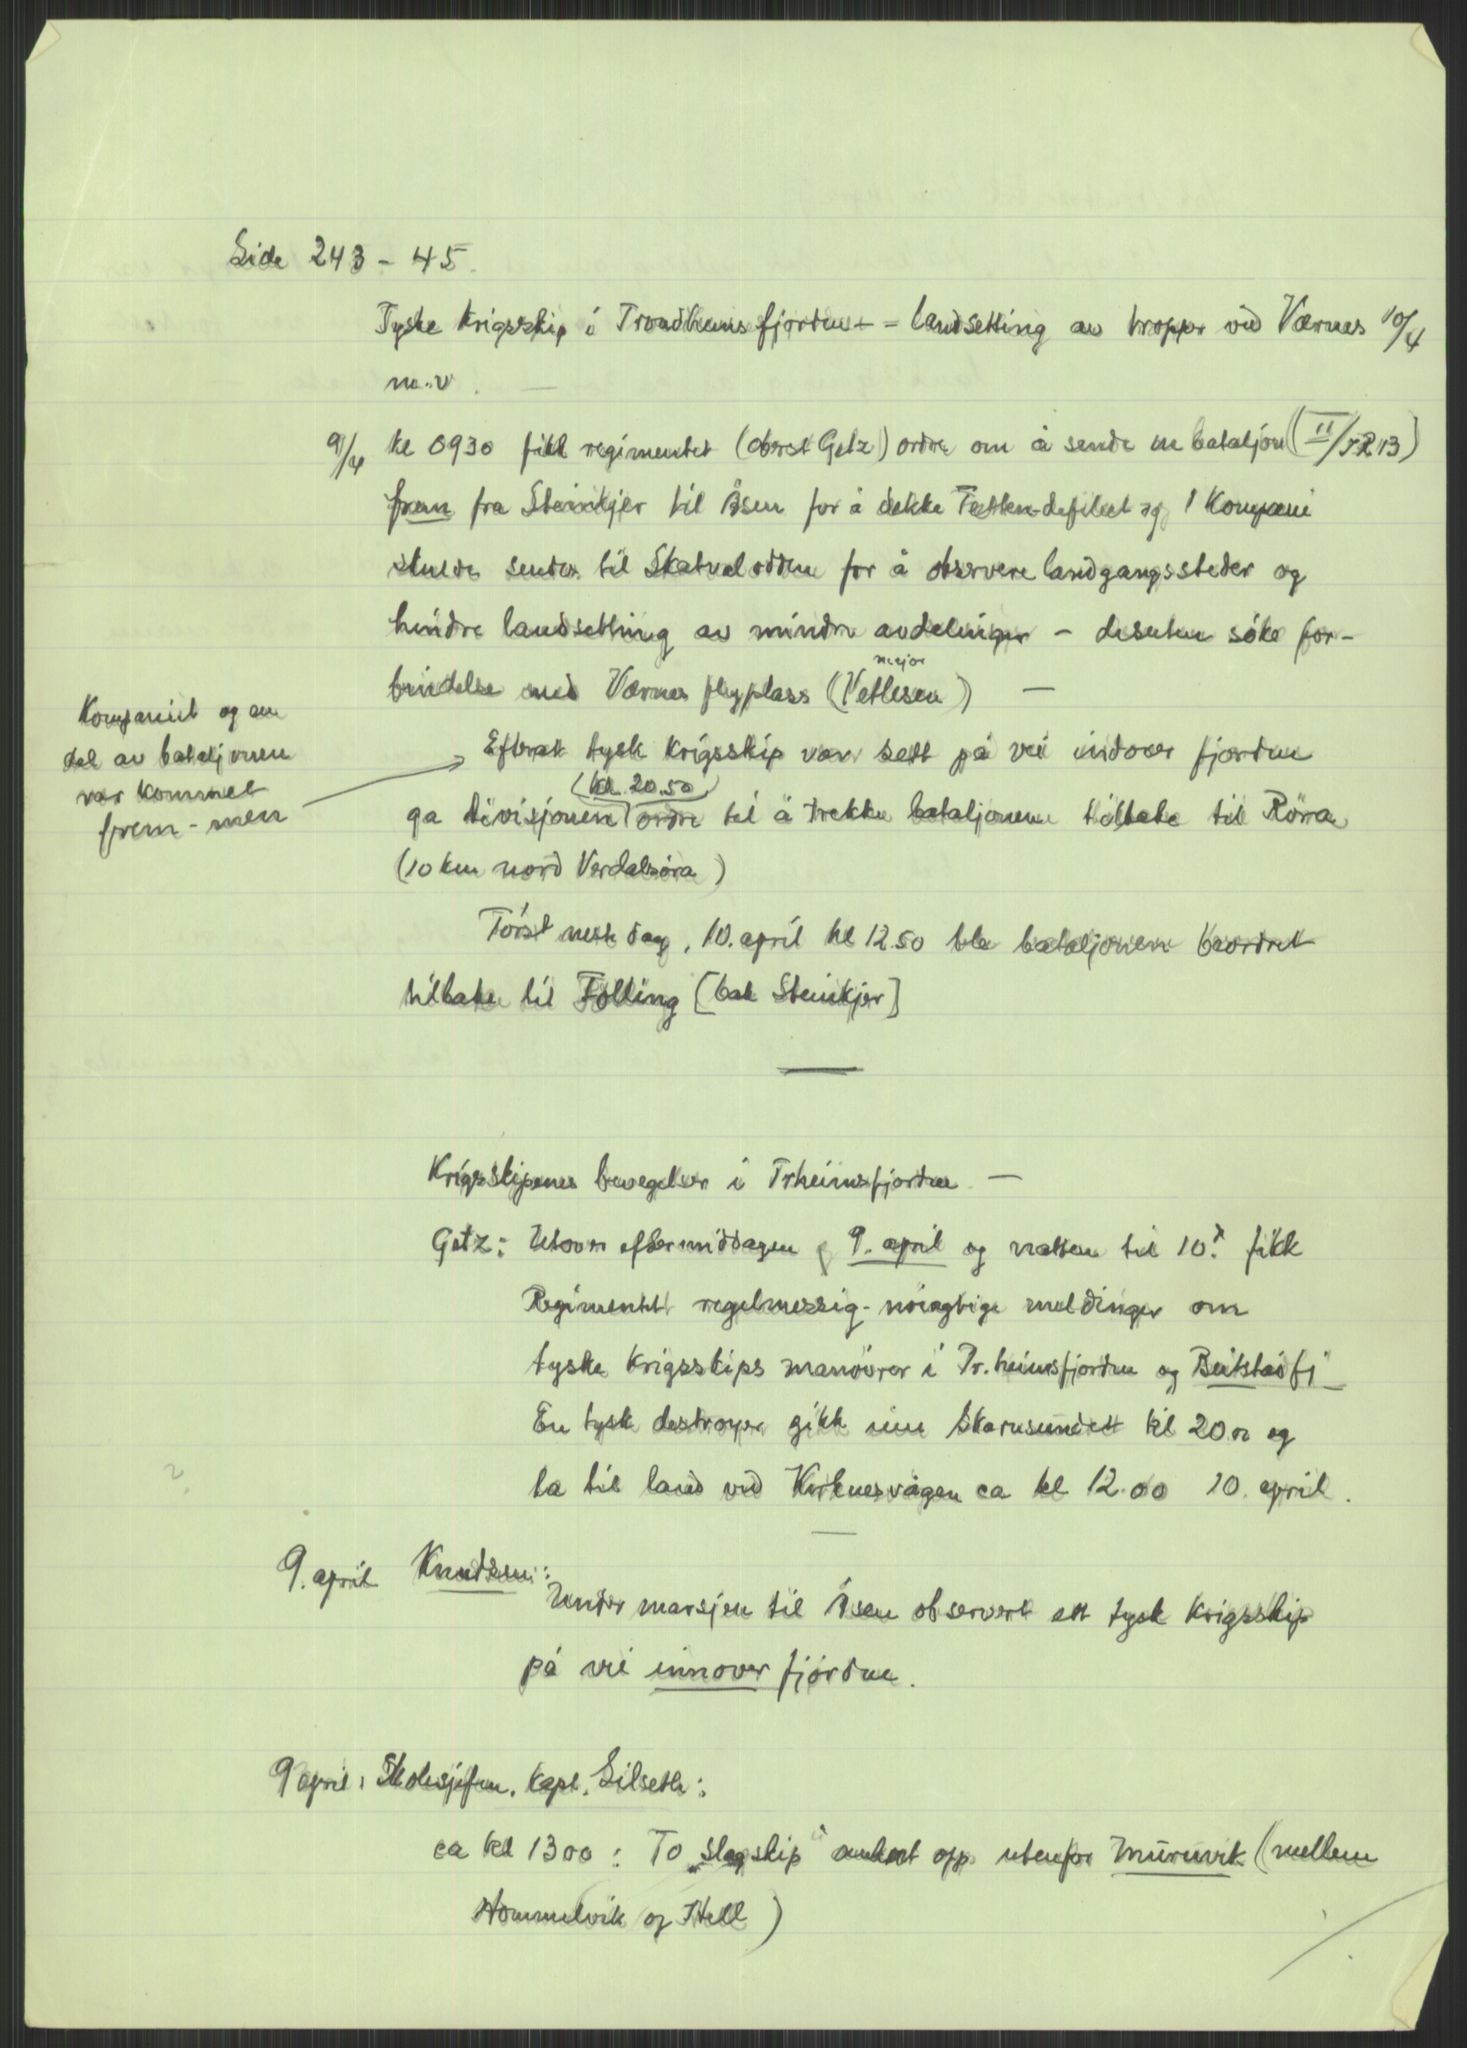 Side 243 - 45.
Tyske krigsskip i Trondheimsfjorden - landsetting av tropper ved Værnes 10/4
m.v. —
9/4 kl 0930 fikk regimentet (oberst Getz) ordre om å sende en bataljon (II/IR 13)
frem fra Steinkjer til Åsen for å dekke Fætten-defileet og 1 kompani
skulde sendes til Skatvalodden for å observere landgangssteder og
hindre landsetting av mindre avdelinger - desuten söke for-
bindelse med Værnes flyplass (major Vetlesen) —
Kompaniet og en
del av bataljonen
var kommet
frem - men
Efterat tysk krigsskip var sett på vei indover fjorden
ga divisjonen (kl. 20.50) ordre til å trekke bataljonene tilbake til Röra
(10 km nord Verdalsöra)
Först neste dag, 10. april kl 12.50 ble bataljonen beordret
tilbake til Fölling [bak Steinkjer]
Krigsskipenes bevegelser i Trheimsfjorden —
Getz: Utover eftermiddagen 9. april og natten til 10. fikk
Regimentet regelmessig - nöiagtige meldinger om
tyske krigsskips manövrer i Tr.heimsfjorden og Beitstadfj -
En tysk destroyer gikk inn Skarnsundet kl 20 og
la til land ved Kirknesvågen ca kl 12.00 10. april.
9. april Knudsen:
Under marsjen til Åsen observert ett tysk krigsskip
på vei innover fjorden.
9 april: Skolesjefen, kapt. Lilseth:
ca kl 1300: To "slagskip" ankret opp utenfor Muruvik (mellem
Hommelvik og Hell)